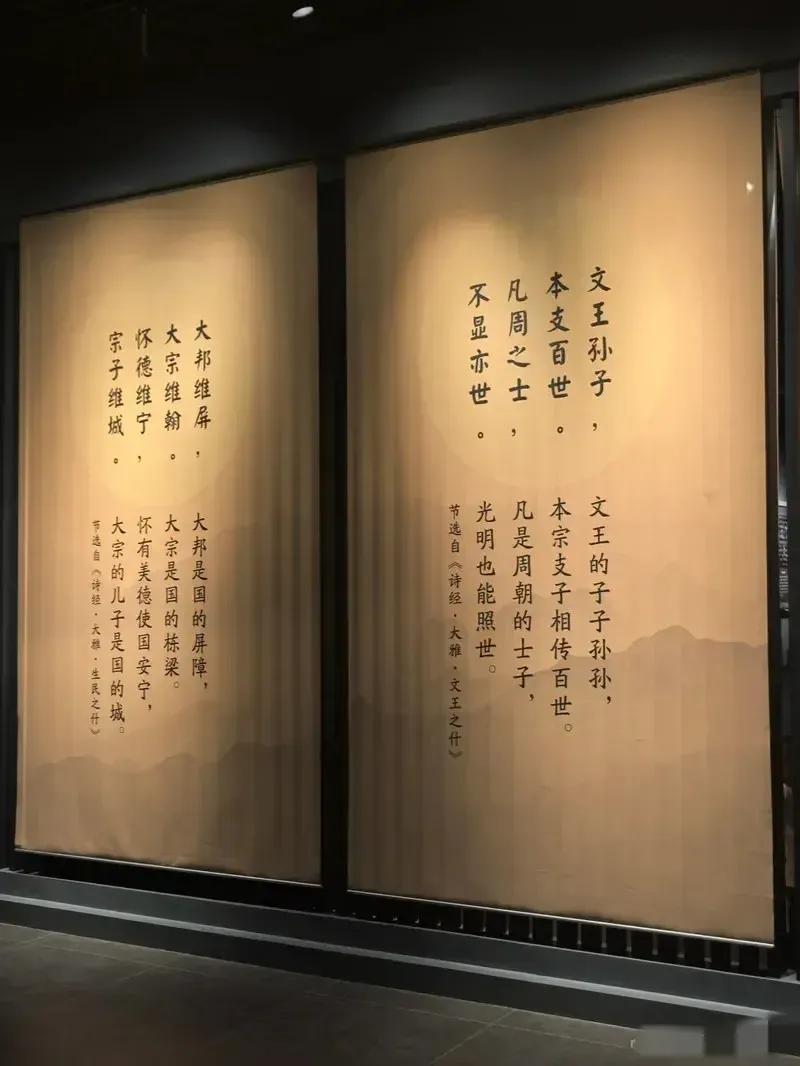 文王孙子，
本支百世。
凡周之士，
不显亦世。
文王的子子孙孙，
本宗支子相传百世。
凡是周朝的士子，
光明也能照世。
节选自《诗经·大雅·文王之什》
大邦维屏，
大宗维翰。
怀德维宁，
宗子维城。
大邦是国的屏障，
大宗是国的栋梁。
怀有美德使国安宁，
大宗的儿子是国的城。
节选自《诗经·大雅·生民之什》